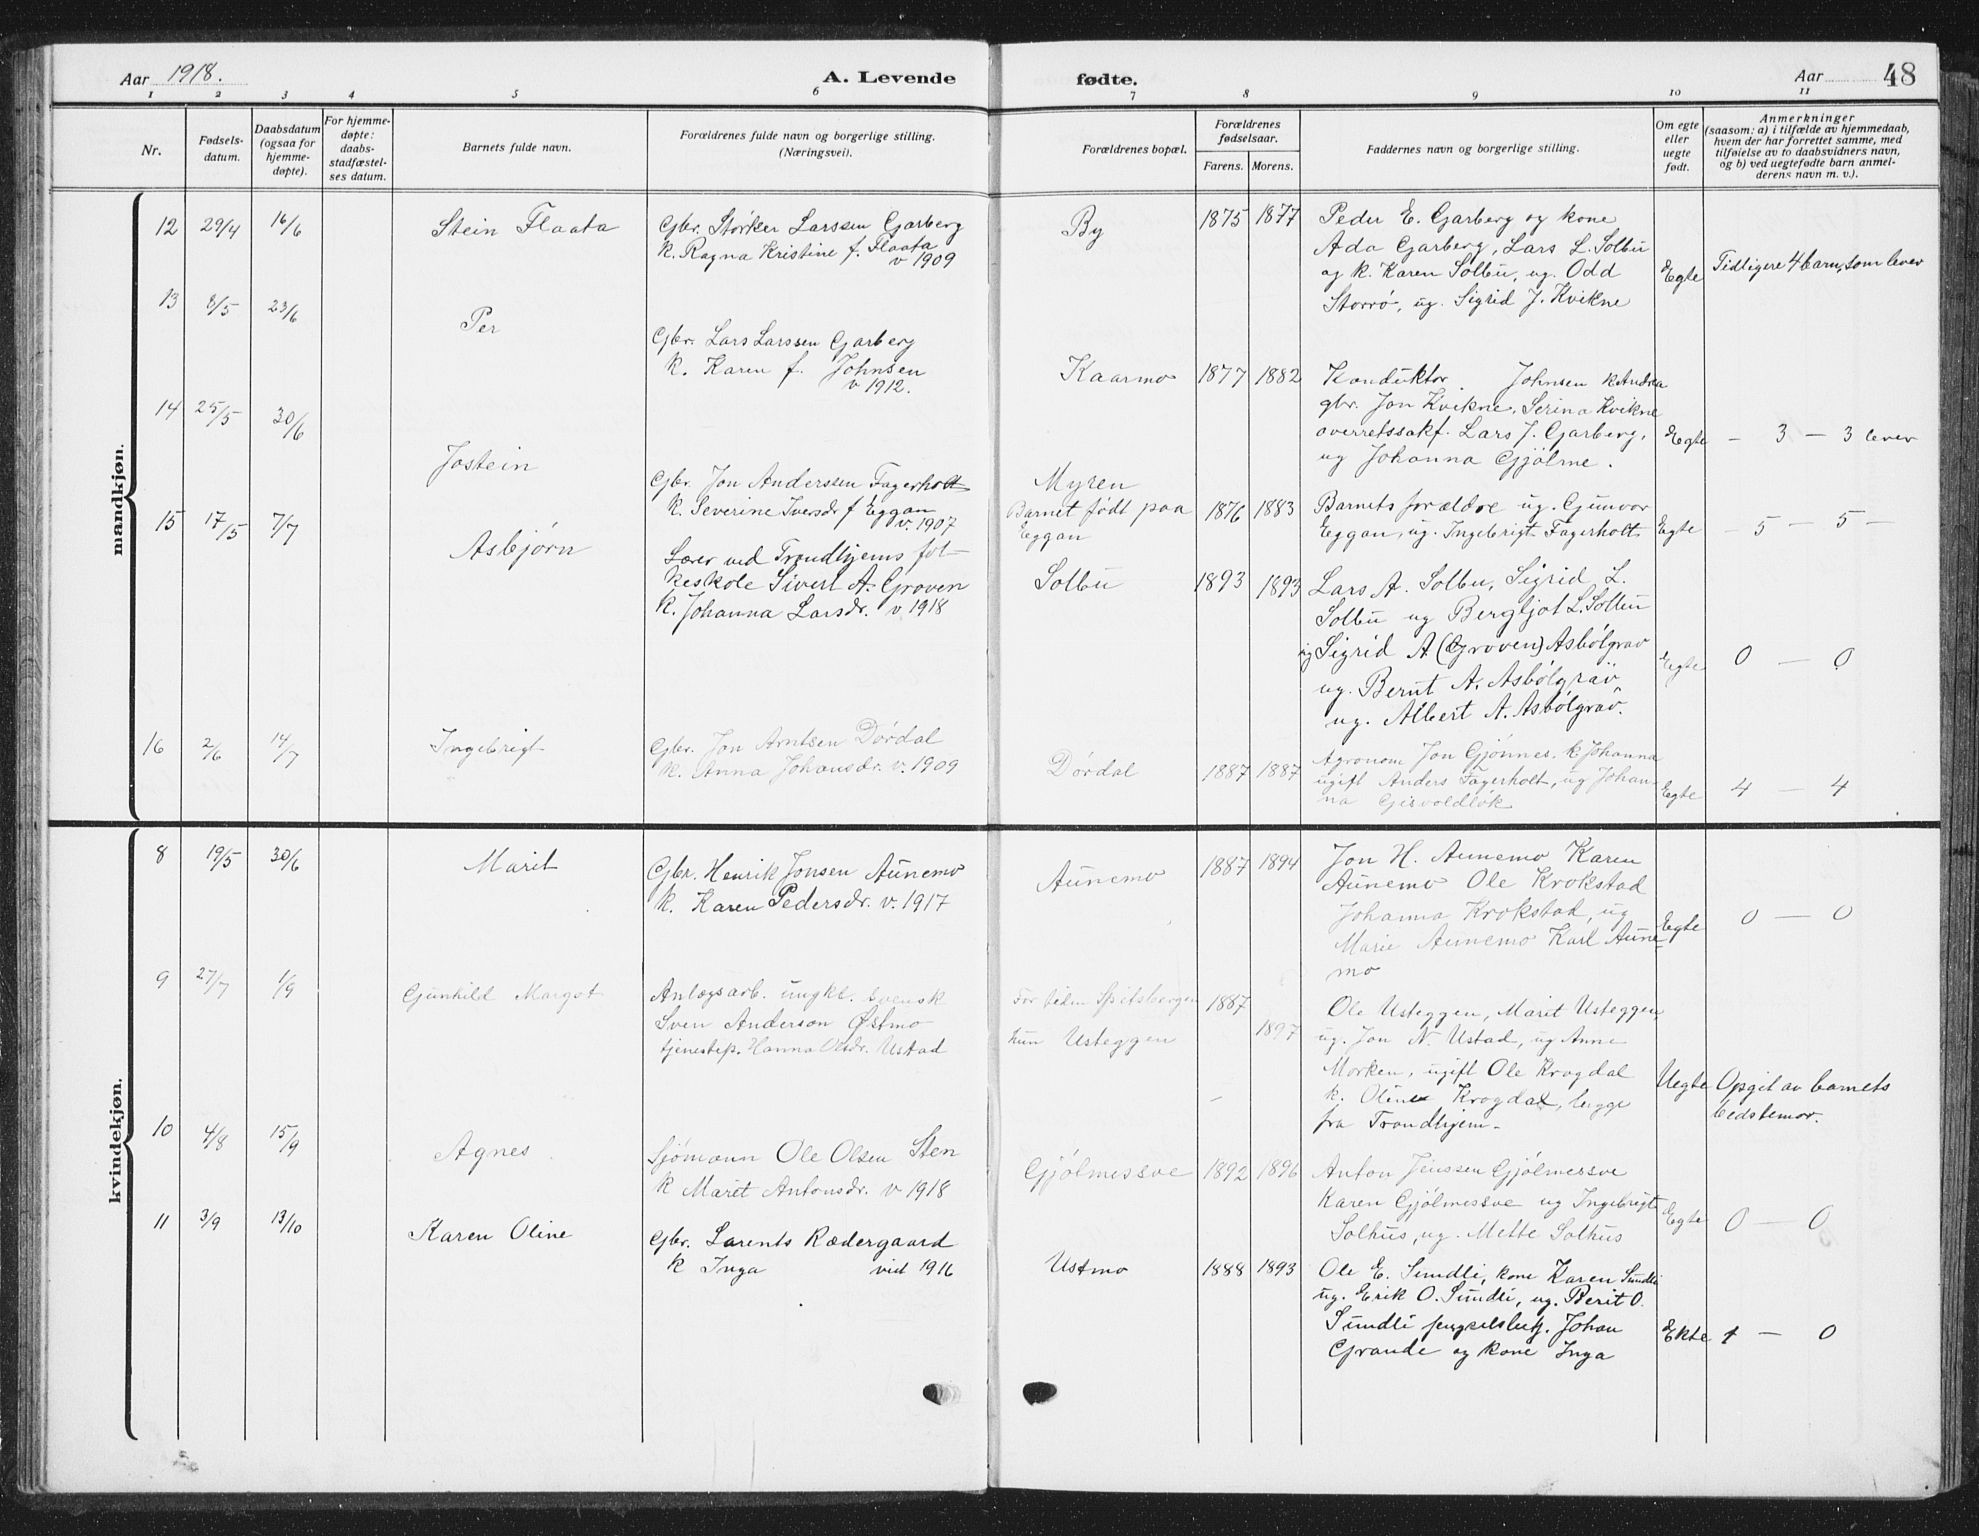 Aar 1918.
A. Levende
fødte.
Aar
48
1 2 3 4 5 6 7 8 9 10 11
Nr.
Fødsels-
datum.
Daabsdatum
(ogsaa for
hjemme-
døpte).
For hjemme-
døpte:
daabs-
stadfæstel-
ses datum.
Barnets fulde navn.
Forældrenes fulde navn og borgerlige stilling.
(Næringsvei).
Forældrenes bopæl.
Forældrenes
fødselsaar.
Farens. Morens.
Faddernes navn og borgerlige stilling.
Om egte
eller
uegte
født.
Anmerkninger
(saasom: a) i tilfælde av hjemmedaab,
hvem der har forrettet samme, med
tilføielse av to daabsvidners navn,
og b) ved uegtefødte barn anmel-
derens navn m. v.).
mandkjøn.
12 29/4 16/6
Stein Flaata
Gbr. Størker Larssen Garberg
k. Ragna Kristine f. Flaata
v 1909
By
1875 1877
Peder E. Garberg og kone
Ada Garberg, Lars L. Solbu
og k. Karen Solbu, ug. Odd
Storrø, ug. Sigrid J. Kvikne
Egte
Tidligere 4 barn, som lever
13 8/5 23/6
Per
Gbr. Lars Larssen Garberg
k. Karen f. Johnsen
v 1912.
Kaarmo
1877 1882
Konduktør. Johnsen k Andrea
gbr. Jon Kvikne, Serina Kvikne
overretssakf. Lars J. Garberg,
ug Johanna Gjølme.
Egte
— 3 — 3 lever
14 25/5 30/6
Jostein
Gbr. Jon Anderssen Fagerholt
k. Severine Iversdr f Eggan
v. 1907
Myren
Barnet født paa
Eggan
1876 1883
Barnets forældre ug. Gunvor
Eggan, ug. Ingebrigt Fagerholt
Egte
— 5 — 5 —
15 17/5 7/7
Asbjørn
Lærer ved Trondhjems fol-
keskole Sivert A. Groven
k. Johanna Larsdr. v. 1918
Solbu
1893 1893
Lars A. Solbu, Sigrid L.
Solbu ug Bergljot L. Solbu
ug Sigrid A (Groven) Asbølgrav
ug. Bernt A. Asbølgrav
ug. Albert A. Asbølgrav.
Egte
0 — 0
16 2/6 14/7
Ingebrigt
Gbr. Jon Arntsen Dørdal
k. Anna Johansdr. v. 1909
Dørdal
1887 1887
Agronom Jon Gjønnes. k. Johanna
ugift Anders Fagerholt, ug Johan-
na Gisvoldløk
Egte
4 — 4
kvindekjøn.
8 19/5 30/6
Marit
Gbr. Henrik Jonsen Aunemo
k. Karen Pedersdr. v. 1917
Aunemo
1887 1894
Jon H. Aunemo Karen
Aunemo Ole Krokstad
Johanna Krokstad, ug
Marie Aunemo Karl Aune-
mo
Egte
0 — 0
9 27/7 1/9
Gunhild Margot
Anlægsarb. ungkl. svensk
Sven Anderson Østmo
tjenestep. Hanna Olsdr. Ustad
For tiden Spitsbergen
hun Usteggen
1887
1897
Ole Usteggen, Marit Usteggen,
ug. Jon N. Ustad, ug Anne
Morken, ugift Ole Krogdal
k. Oline Krogdal, begge
fra Trondhjem-
Uegte
Opgit av barnets
bedstemor.
10 4/8 15/9
Agnes
Sjømann Ole Olsen Sten
k Marit Antonsdr. v 1918
Gjølmessve
1892 1896
Anton Jenssen Gjølmessve
Karen Gjølmessve og Ingebrigt
Solhus, ug. Mette Solhus
Egte
0 — 0
11 3/9 13/10
Karen Oline
Gbr. Larents Rædergaard
k Inga vid 1916
Ustmo
1888 1893
Ole E. Sundli, kone Karen Sundli
ug. Erik O. Sundli, ug. Berit O.
Sundli fengselsbetj. Johan
Grande og kone Inga
Ekte
1 — 0